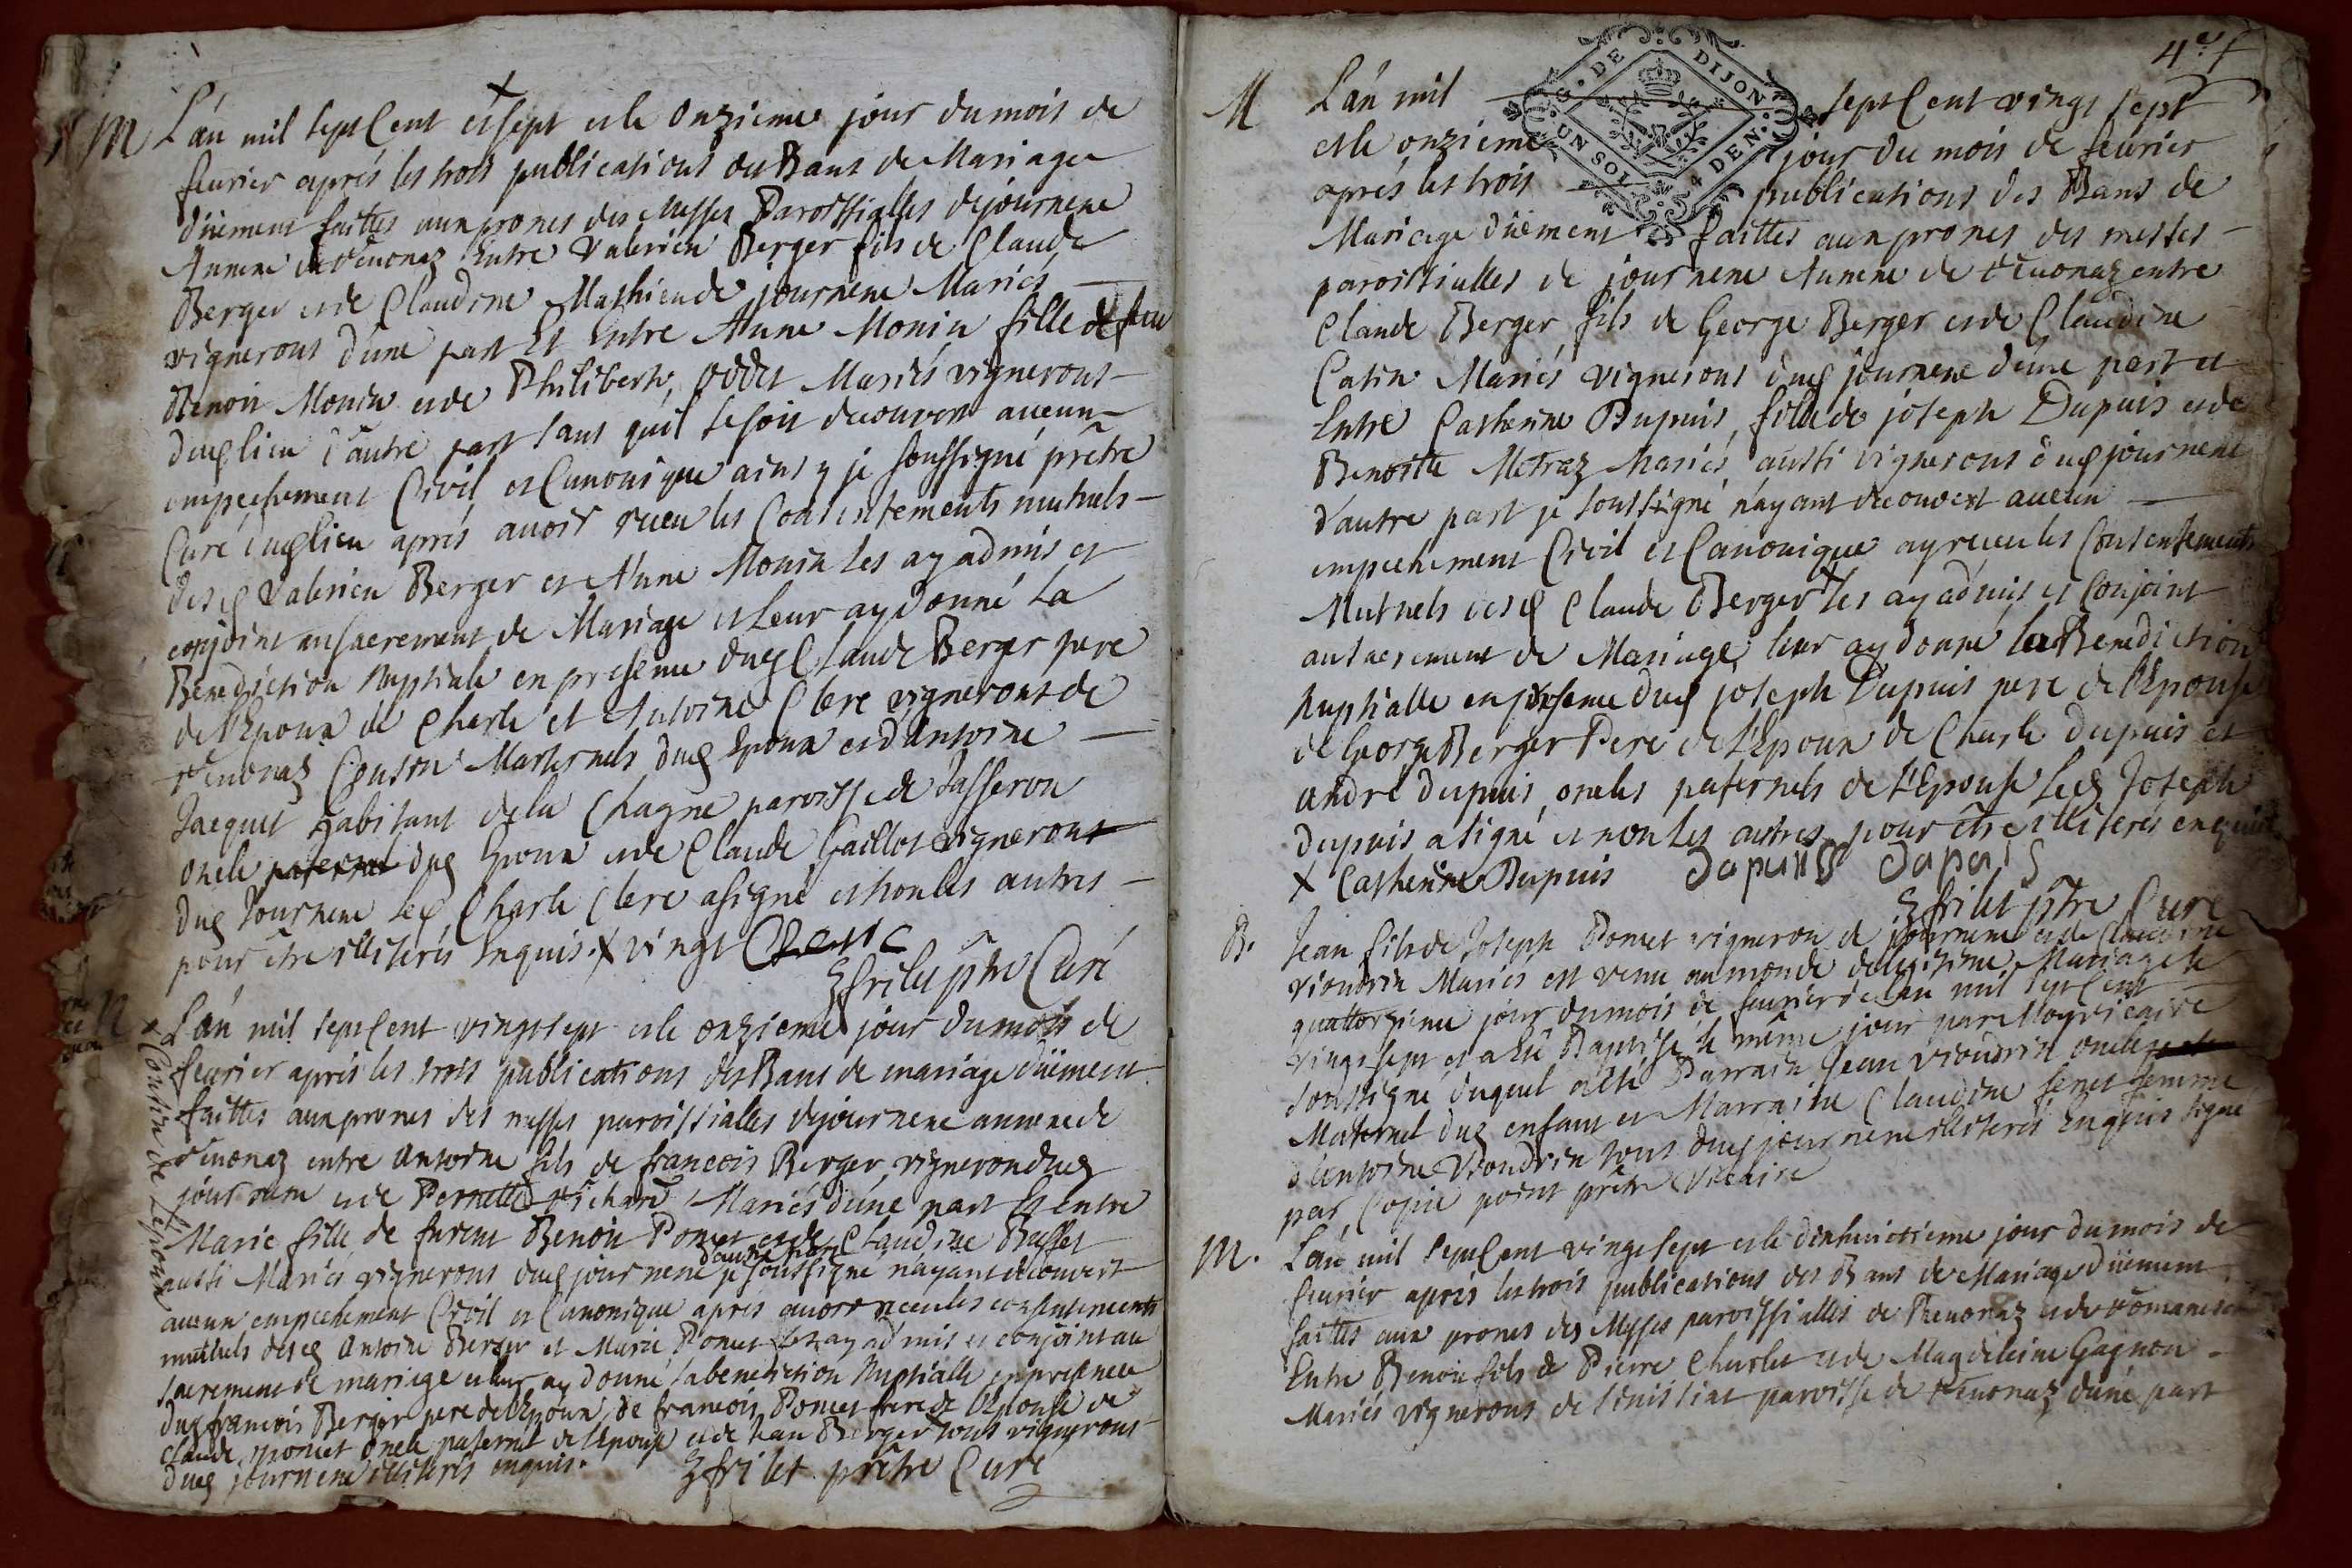 M L'an mil sept Cent et x sept et le onzieme jour du mois de
fevrier aprés les trois publications des Bans de Mariage
düement faittes aux prones des Messes Paroissialles de journene
Annexe de revonaz Entre Valerien Berger fils de Claude
Berger et de Claudine Mathieu de journene Mariés
vignerons d'une part Et Entre Anne Monin fille de feu
Benoit Monin et de Philiberte Oddet Mariés vignerons
dud lieu d'autre part sans quil se soit decouvert aucun
empechement Civil et Canonique ainsy je soussigné prêtre
Curé dud lieu aprés avoir receu les Consentements mutuels
desd Valerien Berger et Anne Monin les ay admis et
conjoint au sacrement de Mariage et Leur ay donné la
Benediction Nuptiale en presence dud Claude Berger pere
de l'Epoux de Charle et Antoine Clere vignerons de
revonaz Couson Maternels dud Epoux et d'Antoine
Jacquet habitant de la Chagne paroisse de Jasseron
oncle paternel dud Epoux et de Claude Gaillot vignerons
dud Journene led Charle Clere a signé et non les autres
pour être illiterés Enquis. x vingt Clere
frilet ptre Curé
M L'an mil sept Cent vingt sept et le onzieme jour du mois de
fevrier aprés les trois publications des Bans de mariage düement
faittes aux prones des messes paroissialles de journene annexe de
revonaz entre Antoine fils de francois Berger vigneron dud
journene et de Pernette richard Mariés d'une part Et entre
Marie fille de furent Benoit Poncet et de Claudine Buffet
aussi Mariés vignerons dud journene d'autre part je soussigné nayant decouvert
aucun empechement Civil et Canonique aprés avoir receu les consentements
mutuels desd Antoine Berger et Marie Poncet les ay admis et conjoint au
sacrement de mariage et leur ay donné la benediction Nuptialle en presence
dud francois Berger pere de l'Epoux de francois Poncet frere de l'Epouse de
Claude Poncet oncle paternel de l'Epouse et de Jean Berger tous vignerons
dud journene illiterés enquis.
frilet prêtre Curé
x Cousin de l'Epoux
4e f
G. DE DIJON
UN SOL 4 DEN.
M L'an mil sept Cent vingt sept
et le onzieme jour du mois de fevrier
aprés les trois publications des Bans de
Mariage düement faittes aux prones des messes
paroissialles de journene Annexe de revonaz entre
Claude Berger fils de George Berger et de Claudine
Catin Mariés vignerons dud journene d'une part et
Entre Catherine Dupuis fille de joseph Dupuis et de
Benoitte Metraz Mariés aussi vignerons dud journene
d'autre part je soussigné n'ayant decouvert aucun
empechement Civil et Canonique ay receu les Consentements
Mutuels desd Claude Berger x les ay admis et Conjoint
au sacrement de Mariage, leur ay donné la Benediction
Nuptialle en presence dud joseph Dupuis pere de l'Epouse
de George Berger Pere de l'Epoux de Charle Dupuis et
andré dupuis oncles paternels de l'Epouse Led Joseph
dupuis a signé et non les autres pour être illiterés enquis
x Catherine Dupuis Dupuis Dupais
frilet ptre Curé
B. Jean fils de Joseph Poncet vigneron de journene et de Claudine
viondrin Mariés est venu au monde de legitime Mariage le
quattorzieme jour du mois de fevrier de l'an mil sept Cent
vingt sept et a été Baptisé le même jour par Moy vicaire
soussigné duquel a été Parrain Jean viondrin oncle
Maternel dud enfant et Marraine Claudine femme
d'Antoine Viondrin tous dud journene illiterés Enquis signé
par Copie point prêtre Vicaire
M. L'an mil sept Cent vingt sept et le dixhuictieme jour du mois de
fevrier aprés les trois publications des Bans de Mariage düement
faittes aux prones des Messes paroissialles de Revonaz et de romaneche
Entre Benoit fils de Pierre Charlet et de Magdeleine Gagnon
Mariés vignerons de senissiat paroisse de revonaz d'une part